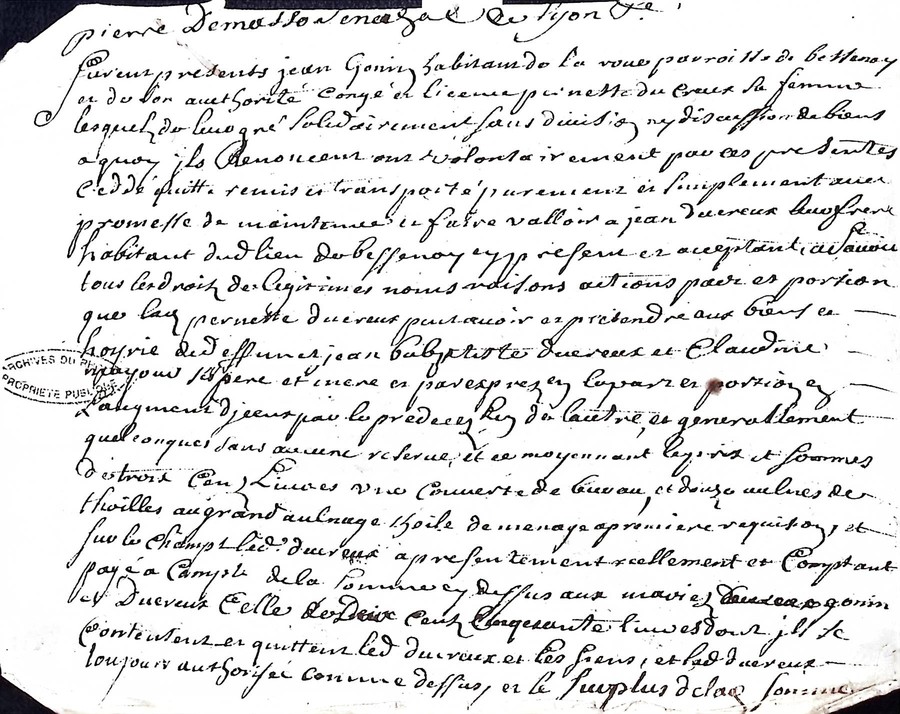 pierre Demasso Senechal de lyon &e
furent presents jean Gonin habitant de la roue parroisse de bessenay
et de son authorité congé et licence pernette du creux sa femme
lesquels de leur gré solidairement sans division ny discussion de biens
a quoy ils Renoncent ont volontairement par ces presentes
ceddé quitté remis et transporté purement et simplement avec
promesse de maintenue et faire valloir a jean ducreux leur frere
habitant dud lieu de bessenay cy present et acceptant, a Scavoir
tous les droits de legitimes noms raisons actions part et portion
que lad pernette ducreux peut avoir et pretendre aux biens et
hoyrie de deffunct jean babptiste ducreux et Claudine
ses pere et mere et par exprez en la part et portion en
L'augment par le predeces de lautre, et generallement
quelconques sans aucune reserve, et ce moyennant le prix et sommes
de trois Cens Livres une couverte de bureau, et douze aulnes de
thoilles au grand aulnage thoile de menage a premiere requision, et
sur le champt led. ducreux a presentement reellement et Comptant
payé a Compte de la Somme cy dessus aux mariez gonin
et Ducreux Celle de Deux cens Cinquante livres dont ils se
Contentent et quittent led ducreux et les siens, et lad ducreux
toujours authorisée comme dessus, et le surplus de lad somme
ARCHIVES DU
PROPRIETE PUBLIQUE